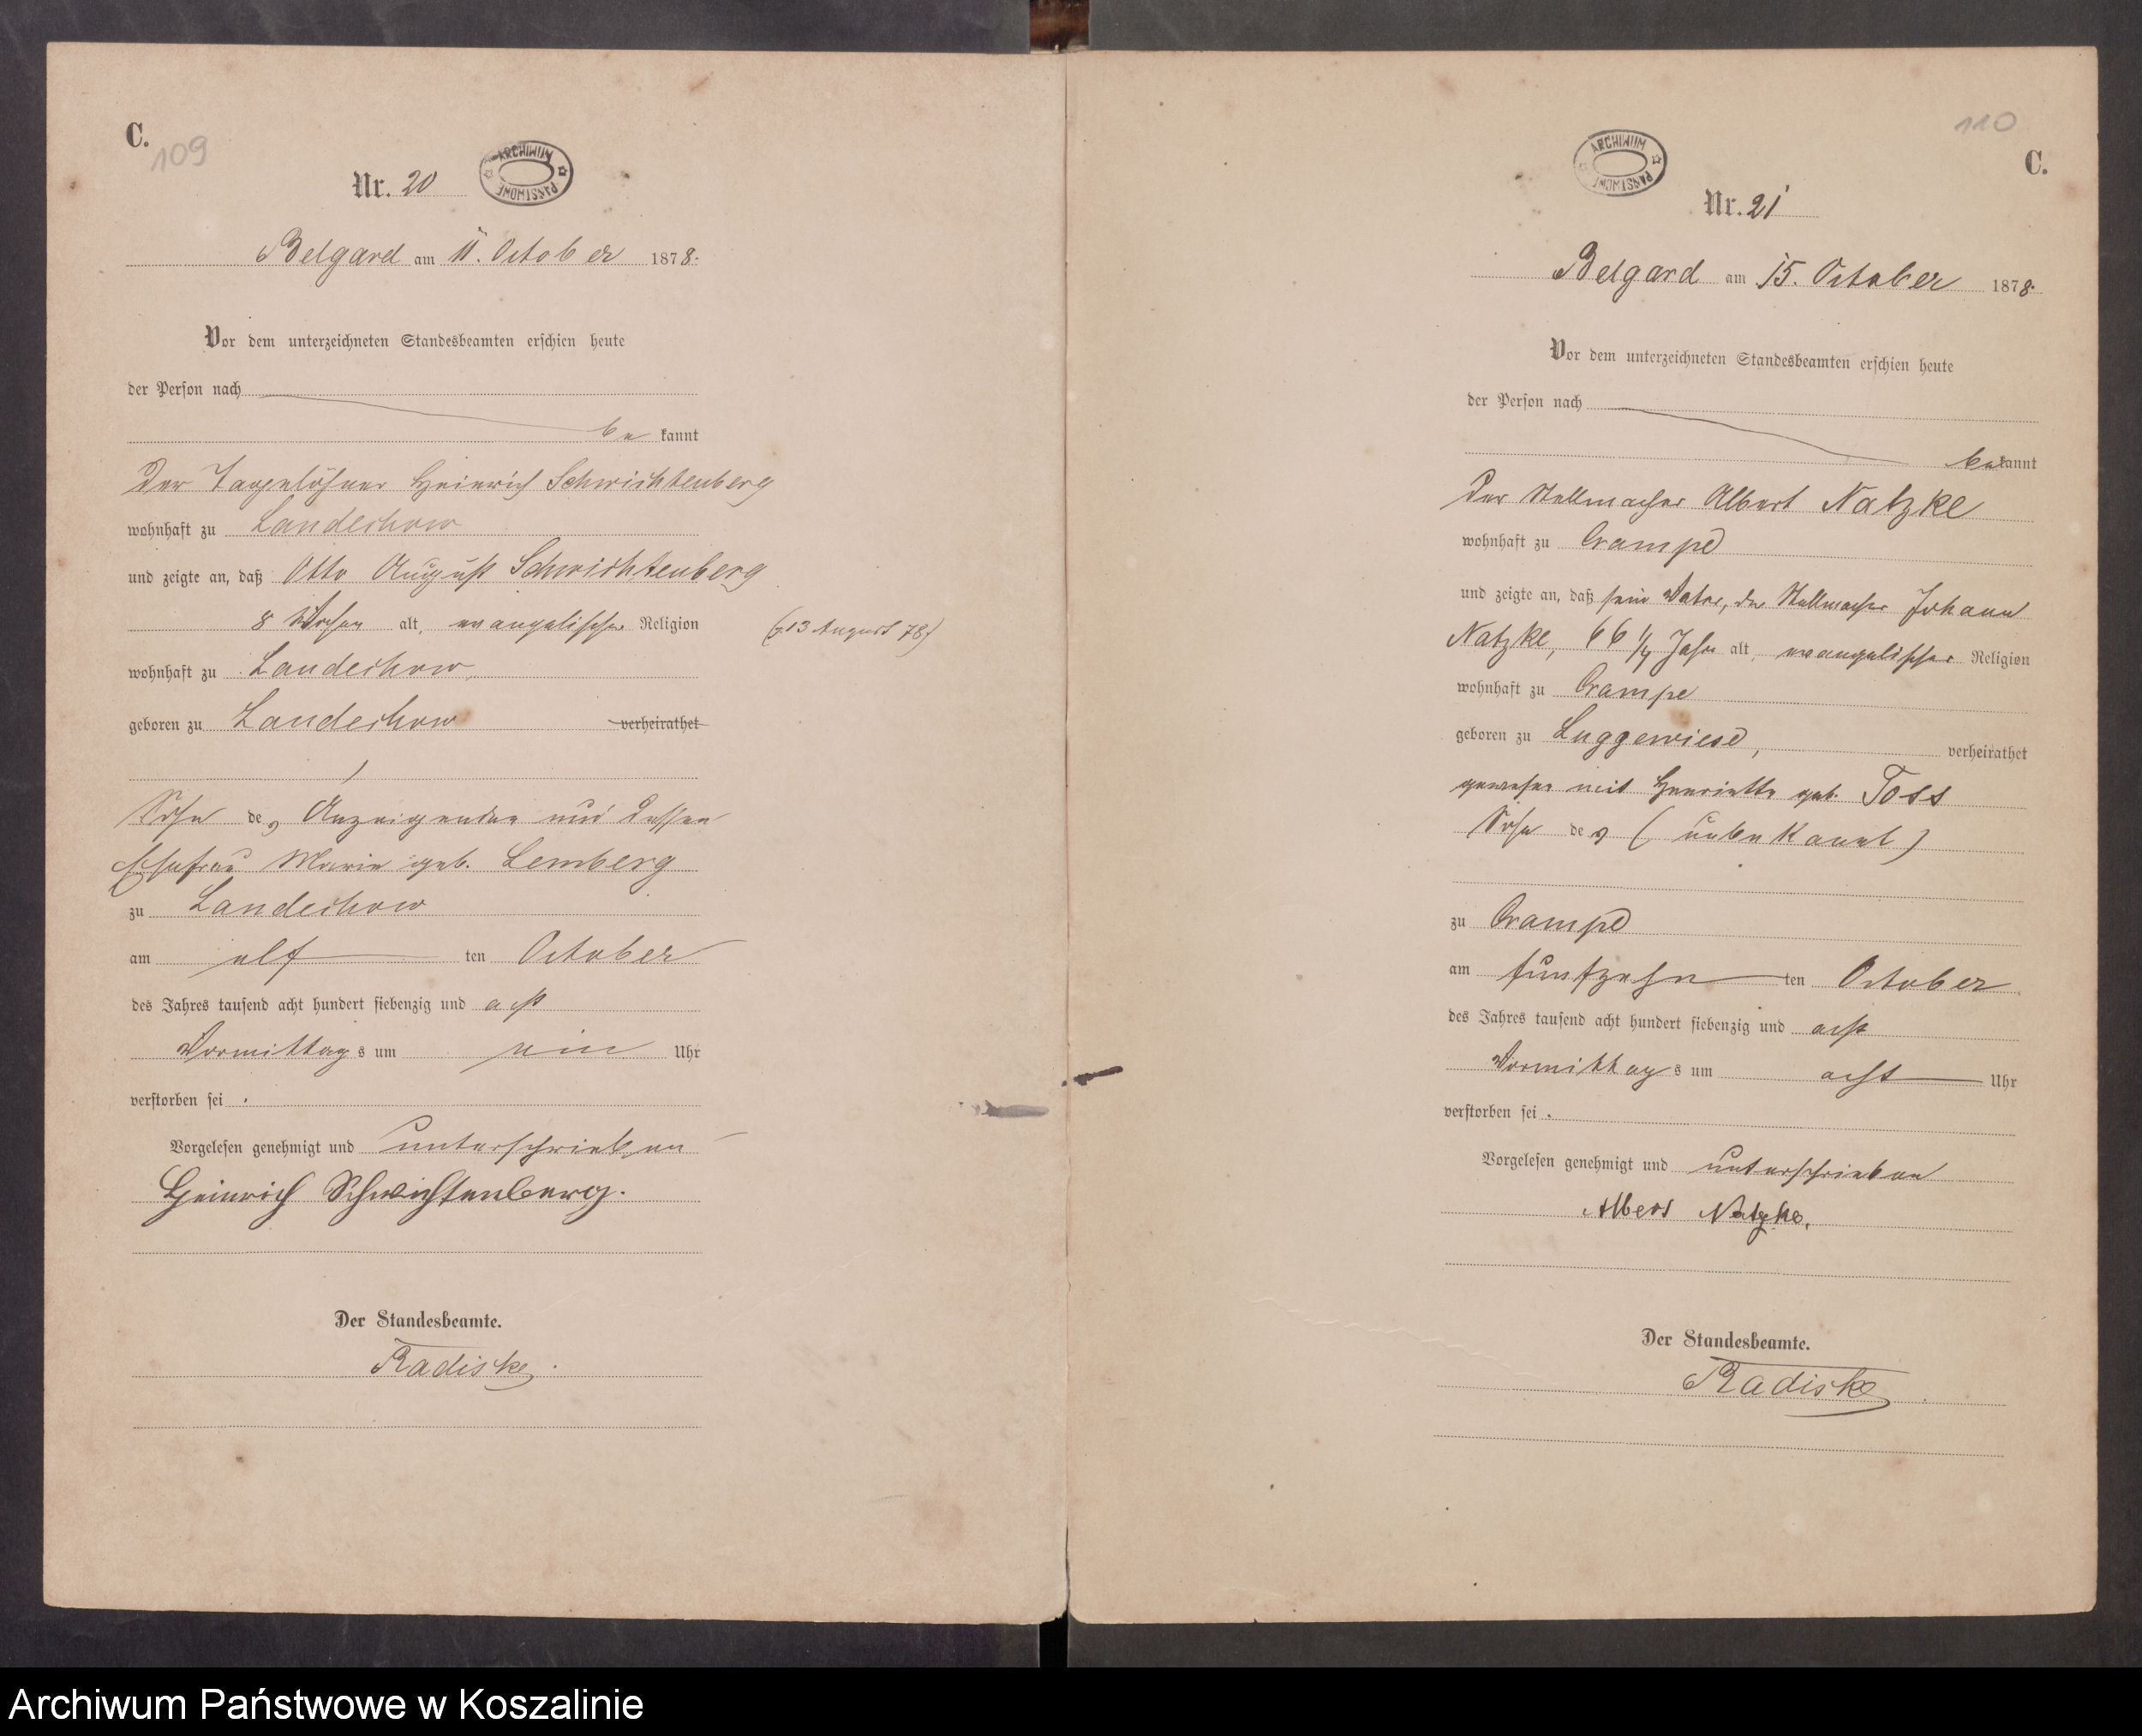 C.
109
Nr. 20
ARCHIWUM PAŃSTWOWE
Belgard am 11. October 1878.
Vor dem unterzeichneten Standesbeamten erschien heute
der Person nach
be kannt
Der Tagelöhner Heinrich Schwichtenberg
wohnhaft zu Landechow
und zeigte an, daß Otto August Schwichtenberg
8 Wochen alt, evangelischer Religion (g. 13 August 78)
wohnhaft zu Landechow,
geboren zu Landechow verheirathet
Sohn des Anzeigenden und dessen
Ehefrau Marie geb. Lemberg
zu Landechow
am elf ten October
des Jahres tausend acht hundert siebenzig und acht
Vormittags um ein Uhr
verstorben sei.
Vorgelesen genehmigt und unterschrieben
Heinrich Schwichtenberg.
Der Standesbeamte.
Radiske.
110
C.
ARCHIWUM PAŃSTWOWE
Nr. 21
Belgard am 15. October 1878.
Vor dem unterzeichneten Standesbeamten erschien heute
der Person nach
bekannt
Der Stellmacher Albert Natzke
wohnhaft zu Crampe
und zeigte an, daß sein Vater, der Stellmacher Johann
Natzke, 66 1/4 Jahr alt, evangelischer Religion
wohnhaft zu Crampe
geboren zu Luggewiese, verheirathet
gewesen mit Henriette geb. Toss
Sohn des (unbekannt)
zu Crampe
am fünfzehn ten October
des Jahres tausend acht hundert siebenzig und acht
Vormittags um acht Uhr
verstorben sei.
Vorgelesen genehmigt und unterschrieben
Albert Natzke.
Der Standesbeamte.
Radiske.
Archiwum Państwowe w Koszalinie